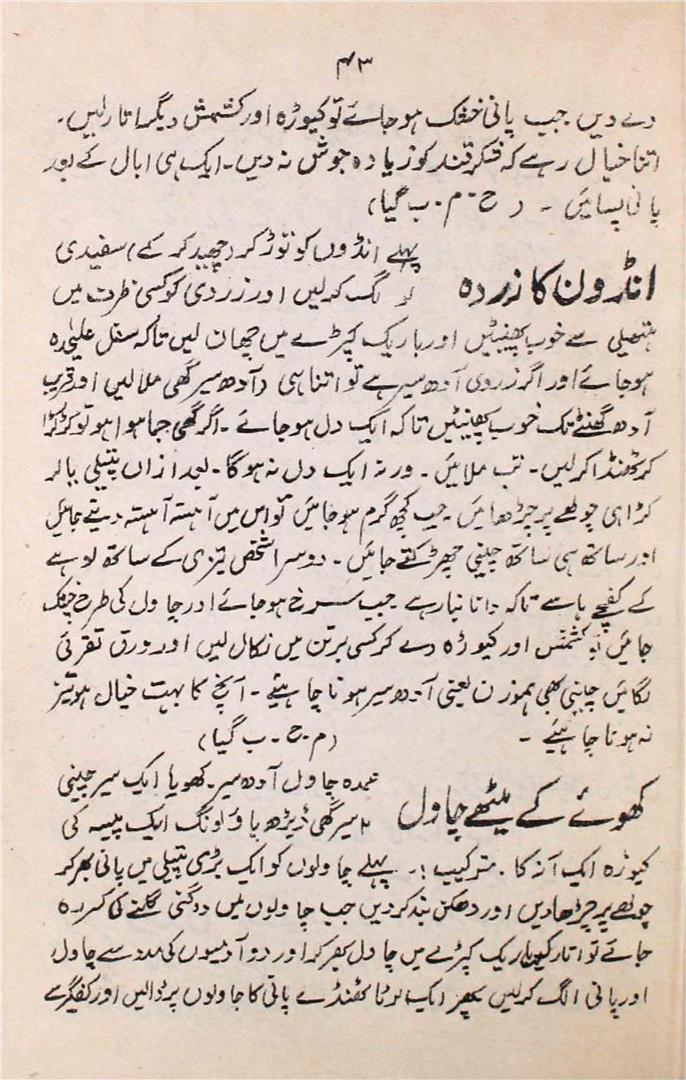 ۴۳
دے دیں جب پانی خشک ہو جائے تو کیوڑہ اور کشمش دیگر اتار لیں۔
اتنا خیال رہے کہ شکر قند کو زیادہ جوش نہ دیں۔ ایک ہی ابال کے بعد
پانی پسائیں ۔ ( ح ۔ م ۔ ب گیا)
انڈرون کا زردہ
پہلے انڈوں کو توڑ کر (چھید کر کے) سفیدی
الگ کر لیں اور زردی کو کسی ظرف میں
ہتھیلی سے خوب پھینٹیں اور باریک کپڑے میں چھان لیں تاکہ سفل علیٰحدہ
ہو جائے اور اگر زردی آدھ سیر ہے تو اتنا ہی (آدھ سیر گھی ملا لیں اور قریب
آدھ گھنٹے تک خوب پھینٹیں تاکہ ایک دل ہو جائے ۔ اگر گھی جما ہوا ہو تو کڑکڑا
کر ٹھنڈا کر لیں۔ تب ملائیں ۔ ورنہ ایک دل نہ ہوگا۔ بعد ازاں پتیلی یا لر
کڑاہی چولھے پر چڑھائیں ۔ جب کچھ گرم ہو جائیں تو اس میں آہستہ آہستہ دیتے جائیں
اور ساتھ ہی ساتھ چینی چھڑکتے جائیں ۔ دوسرا شخص تیزی کے ساتھ لوہے
کے کفچے ہاسے تاکہ دانا نیارہے جب سرخ ہو جائے اور چاول کی طرح خشک
جائیں تو کشمش اور کیوڑہ دے کر کسی برتن میں نکال لیں اور ورق نقرئی
لگائیں چینی بھی ہموزن یعنی آدھ سیر ہونا چاہئیے ۔ آنچ کا بہت خیال ہو تیز
نہ ہونا چاہئیے ۔ (م ۔ ح ۔ ب گیا)
کھوئے کے میٹھے چاول
عمدہ چاول آدھ سیر ۔ کھویا ایک سیر چینی
۲ سیر گھی ڈیڑھ پاؤ لونگ ایک پیسہ کی
کیوڑہ ایک آنہ کا ۔ مترکیب :۔ پہلے چاولوں کو ایک بڑی پتیلی میں پانی بھر کر
چولھے پر چڑھا دیں اور ڈھکن بند کر دیں جب چاولوں میں دوگنی گلنے کی کسر رہ
جائے تو اتار کر باریک کپڑے میں چاول بھر کر اور دو آدمیوں کی مدد سے چاول
اور پانی الگ کر لیں پھر ایک لوٹا ٹھنڈے پانی کا چاولوں پر ڈالیں اور کفگیر سے